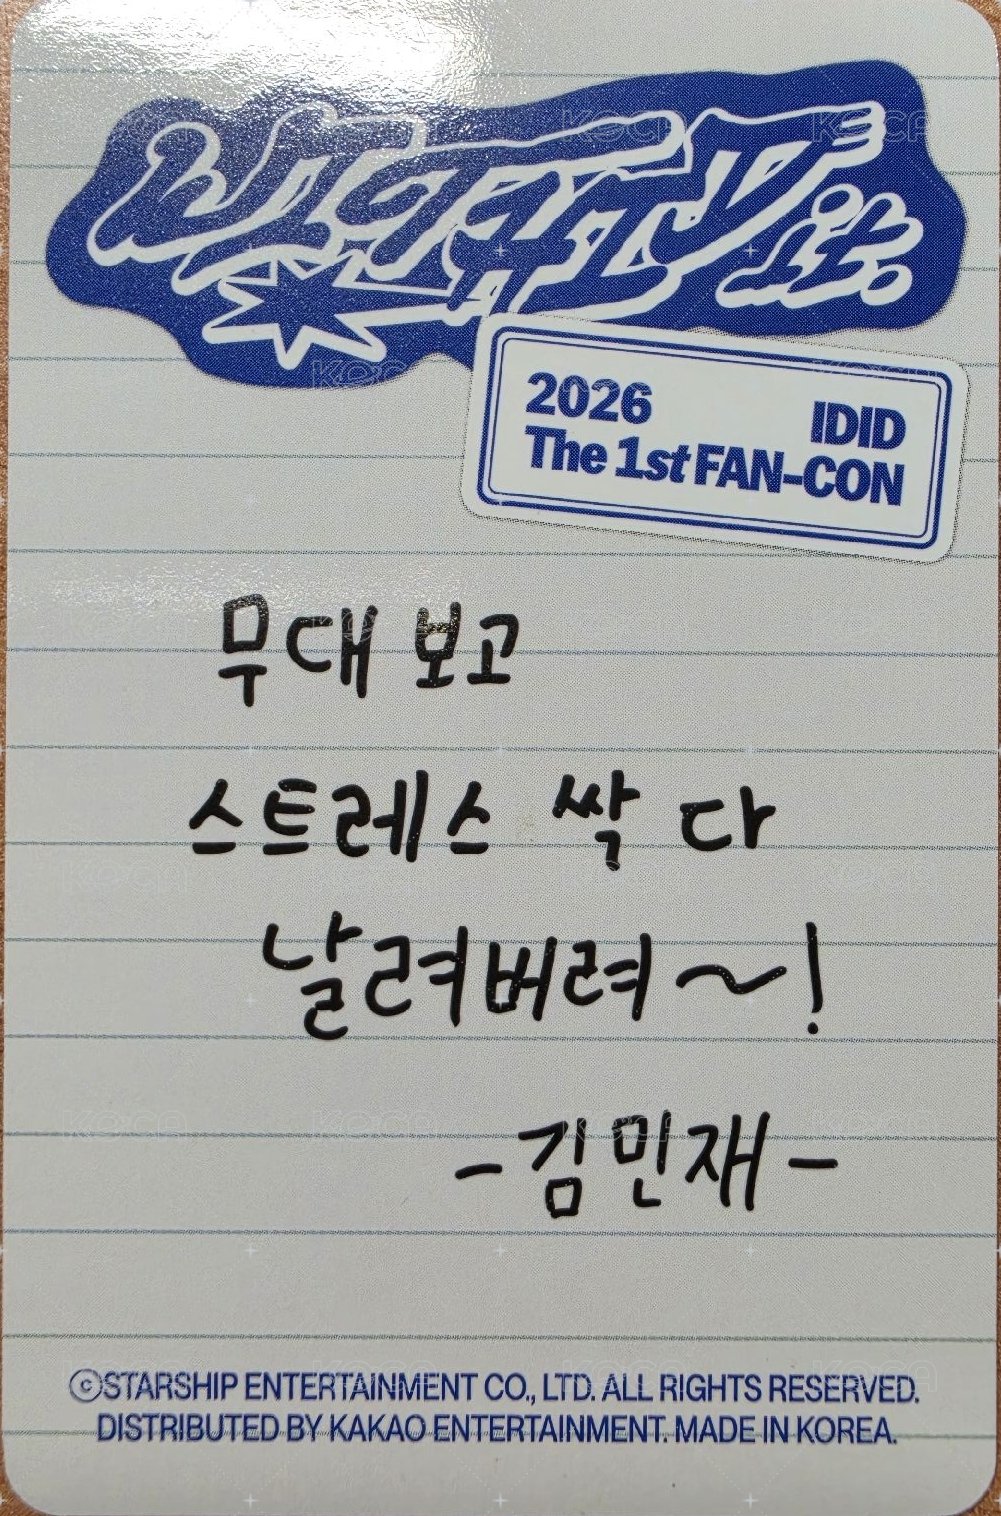 2026 IDID
The 1st FAN-CON
무대 보고
스트레스 싹 다
날려버려~!
-김민재-
ⓒSTARSHIP ENTERTAINMENT CO., LTD. ALL RIGHTS RESERVED.
DISTRIBUTED BY KAKAO ENTERTAINMENT. MADE IN KOREA.
KOCA